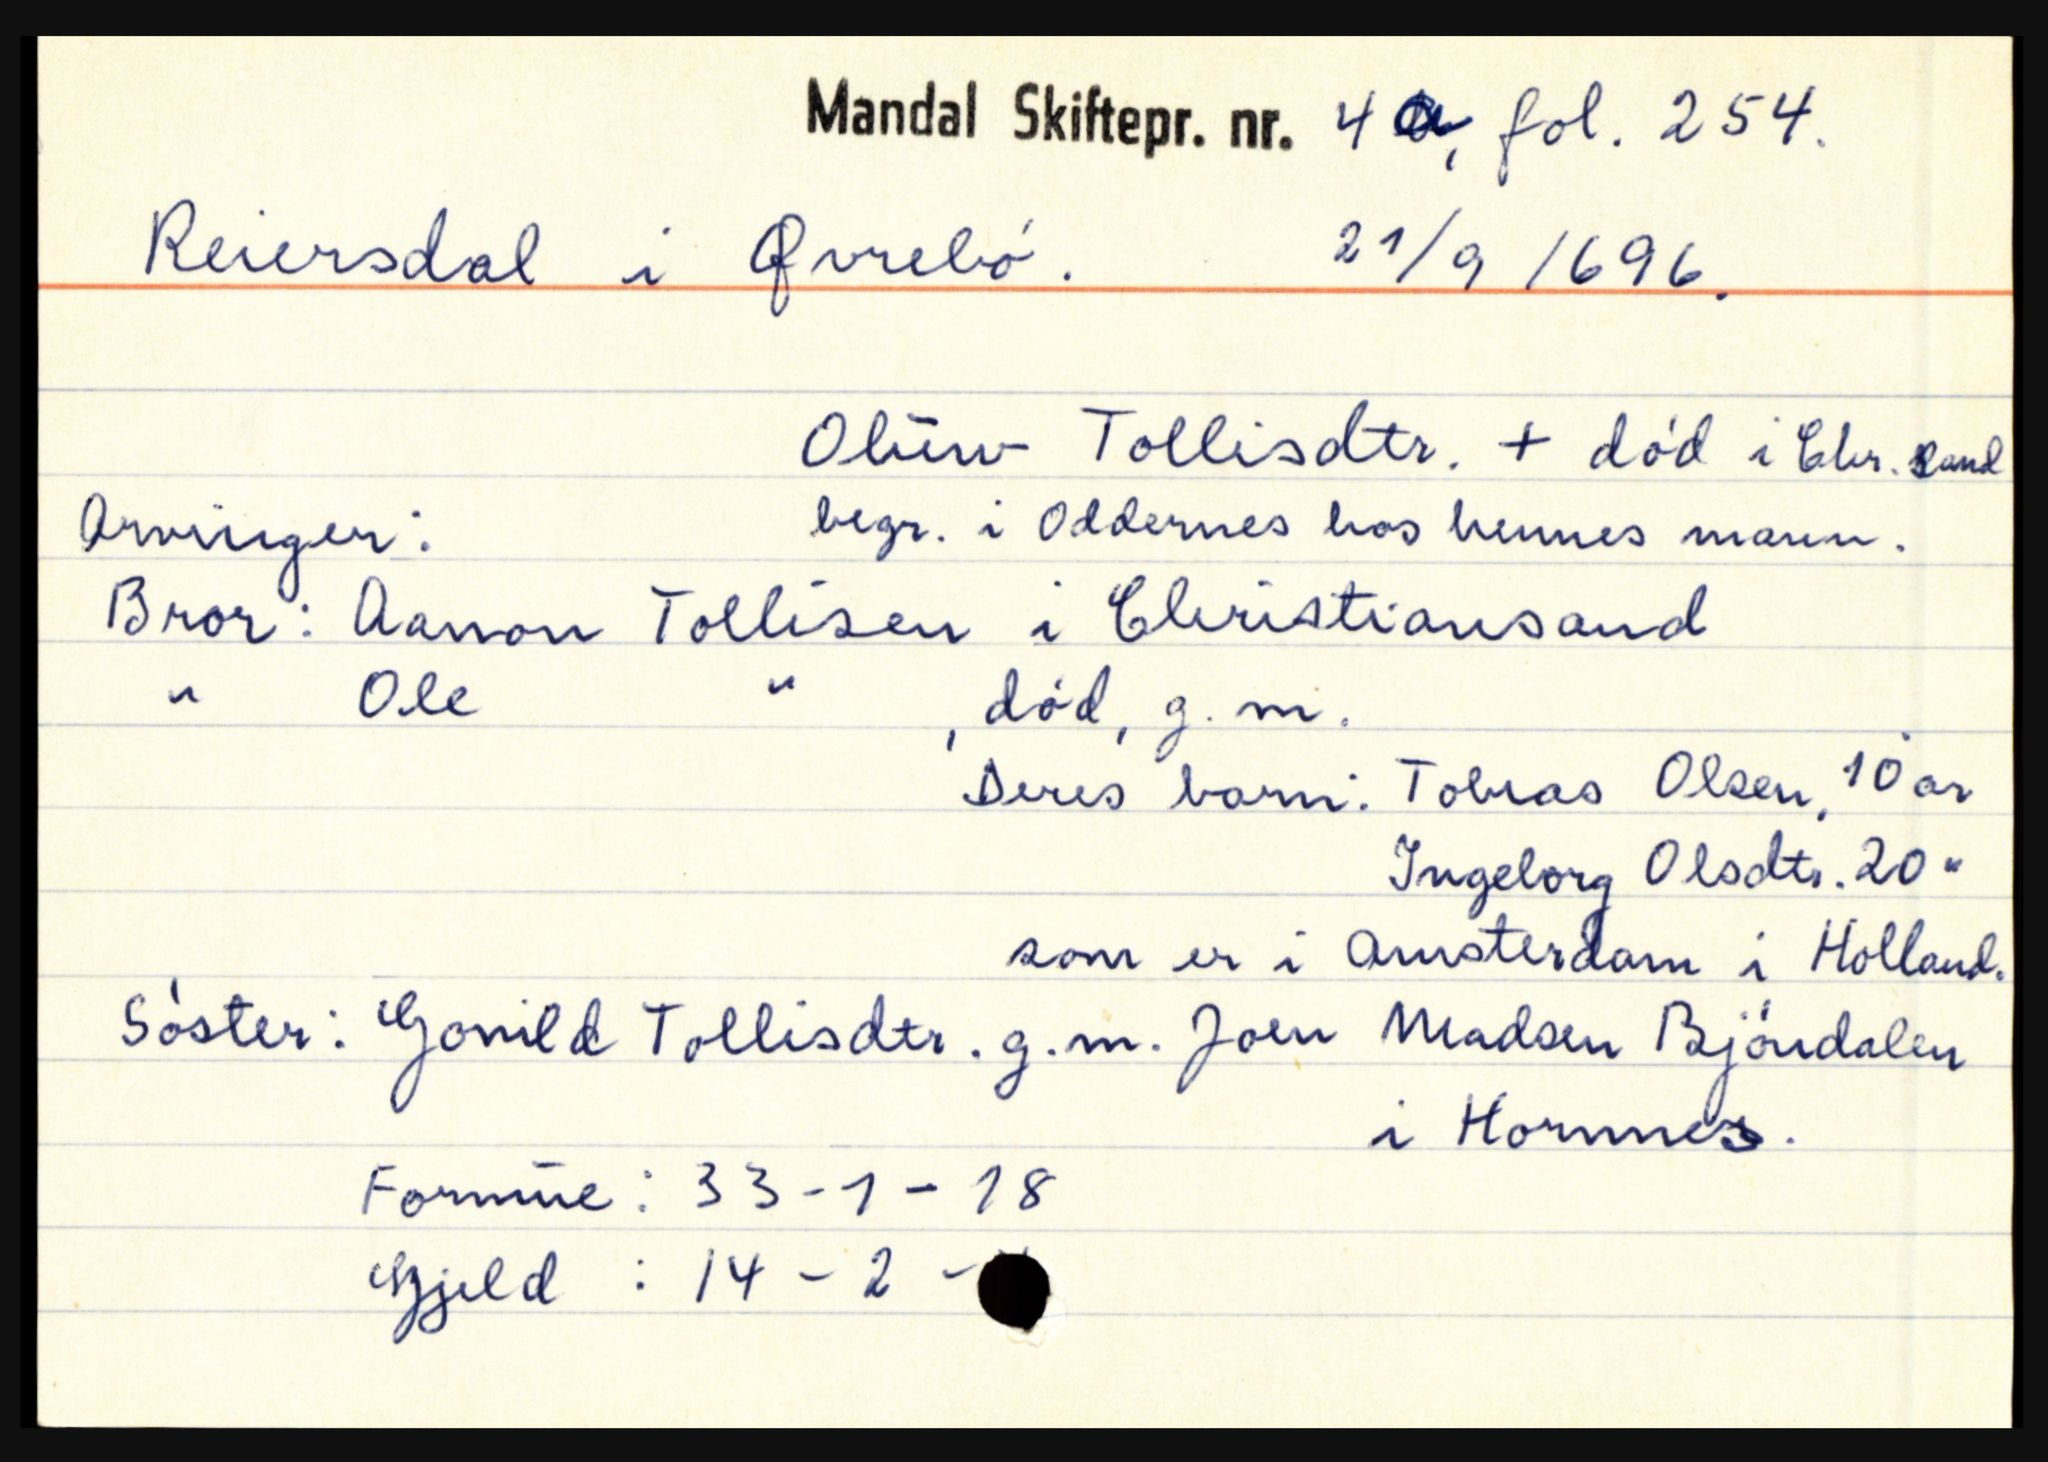 Mandal Skiftepr. nr. 4 a, fol. 254.
Reiersdal i Øvrebö. 21/9 1696.
Olüw Tollisdtr. + död i Chr.sand
Arvinger: begr. i Oddernes hos hennes mann.
Bror: Aanon Tollisen i Christiansand
" Ole " , död, g.m.
Deres barn: Tobias Olsen, 10 år
Ingeborg Olsdtr. 20 "
som er i Amsterdam i Holland.
Söster: Gonild Tollisdtr. g.m. Joen Madsen Bjöndalen
i Hornnes.
Formüe: 33 - 1 - 18
Gjeld : 14 - 2 -